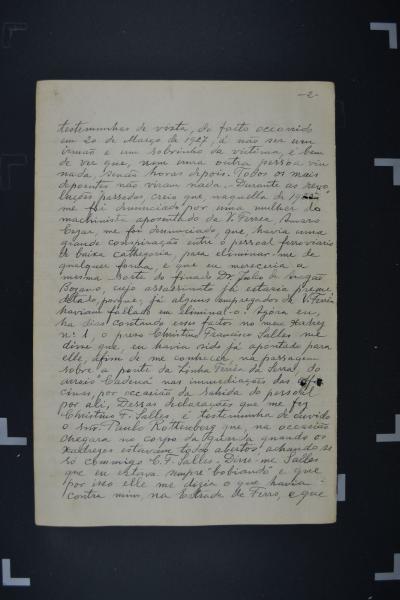 -2-
testemunhas de vista, do facto occorrido
em 20 de Março de 1927, á não ser um
irmão e um sobrinho da victima, é bem
de ver que, nem uma outra pessôa viu
nada, senão horas depois. Todos os mais
depoentes não viram nada. Durante as revo-
luções passadas, creio que, naquella de
me foi denunciado por uma mulher do
machinista aposentado da V. Ferrea, Amaro
Cezar, me foi denunciado, que, havia uma
grande conspiração entre o pessoal ferroviario
de baixa cathegoria, para eliminar-me de
qualquer forma, e que eu mereceria a
mesma sorte do finado Dr. Julio de Aragão
Bozano, cujo assassinato já estaria preme-
ditado, porque, já alguns empregados da V. Ferrea
haviam fallado em eliminal-o. Agora eu,
ha dias contando esses factos no meu xadrez
nº 1, o preso Christino Francisco Salles me
disse que, eu havia sido já apontado para
elle, afim de me conhecer, na passagem
sobre a ponte da Linha Ferrea da Serra, do
arroio "Cadena" nas immediações das offi-
cinas, por occasião da sahida do pessoal
por ali. Dessas declarações que me fez
Christino F. Salles, é testemunha de ouvido
o snr. Paulo Rottemberg que, na occasião
chegara no corpo da guarda quando os
xadrezes estavam todos abertos, achando-se
só commigo C. F. Salles. Disse-me Salles
que eu estava sempre "bobiando" e que
por isso elle me dizia o que havia
contra mim, na Estrada de Ferro, e que